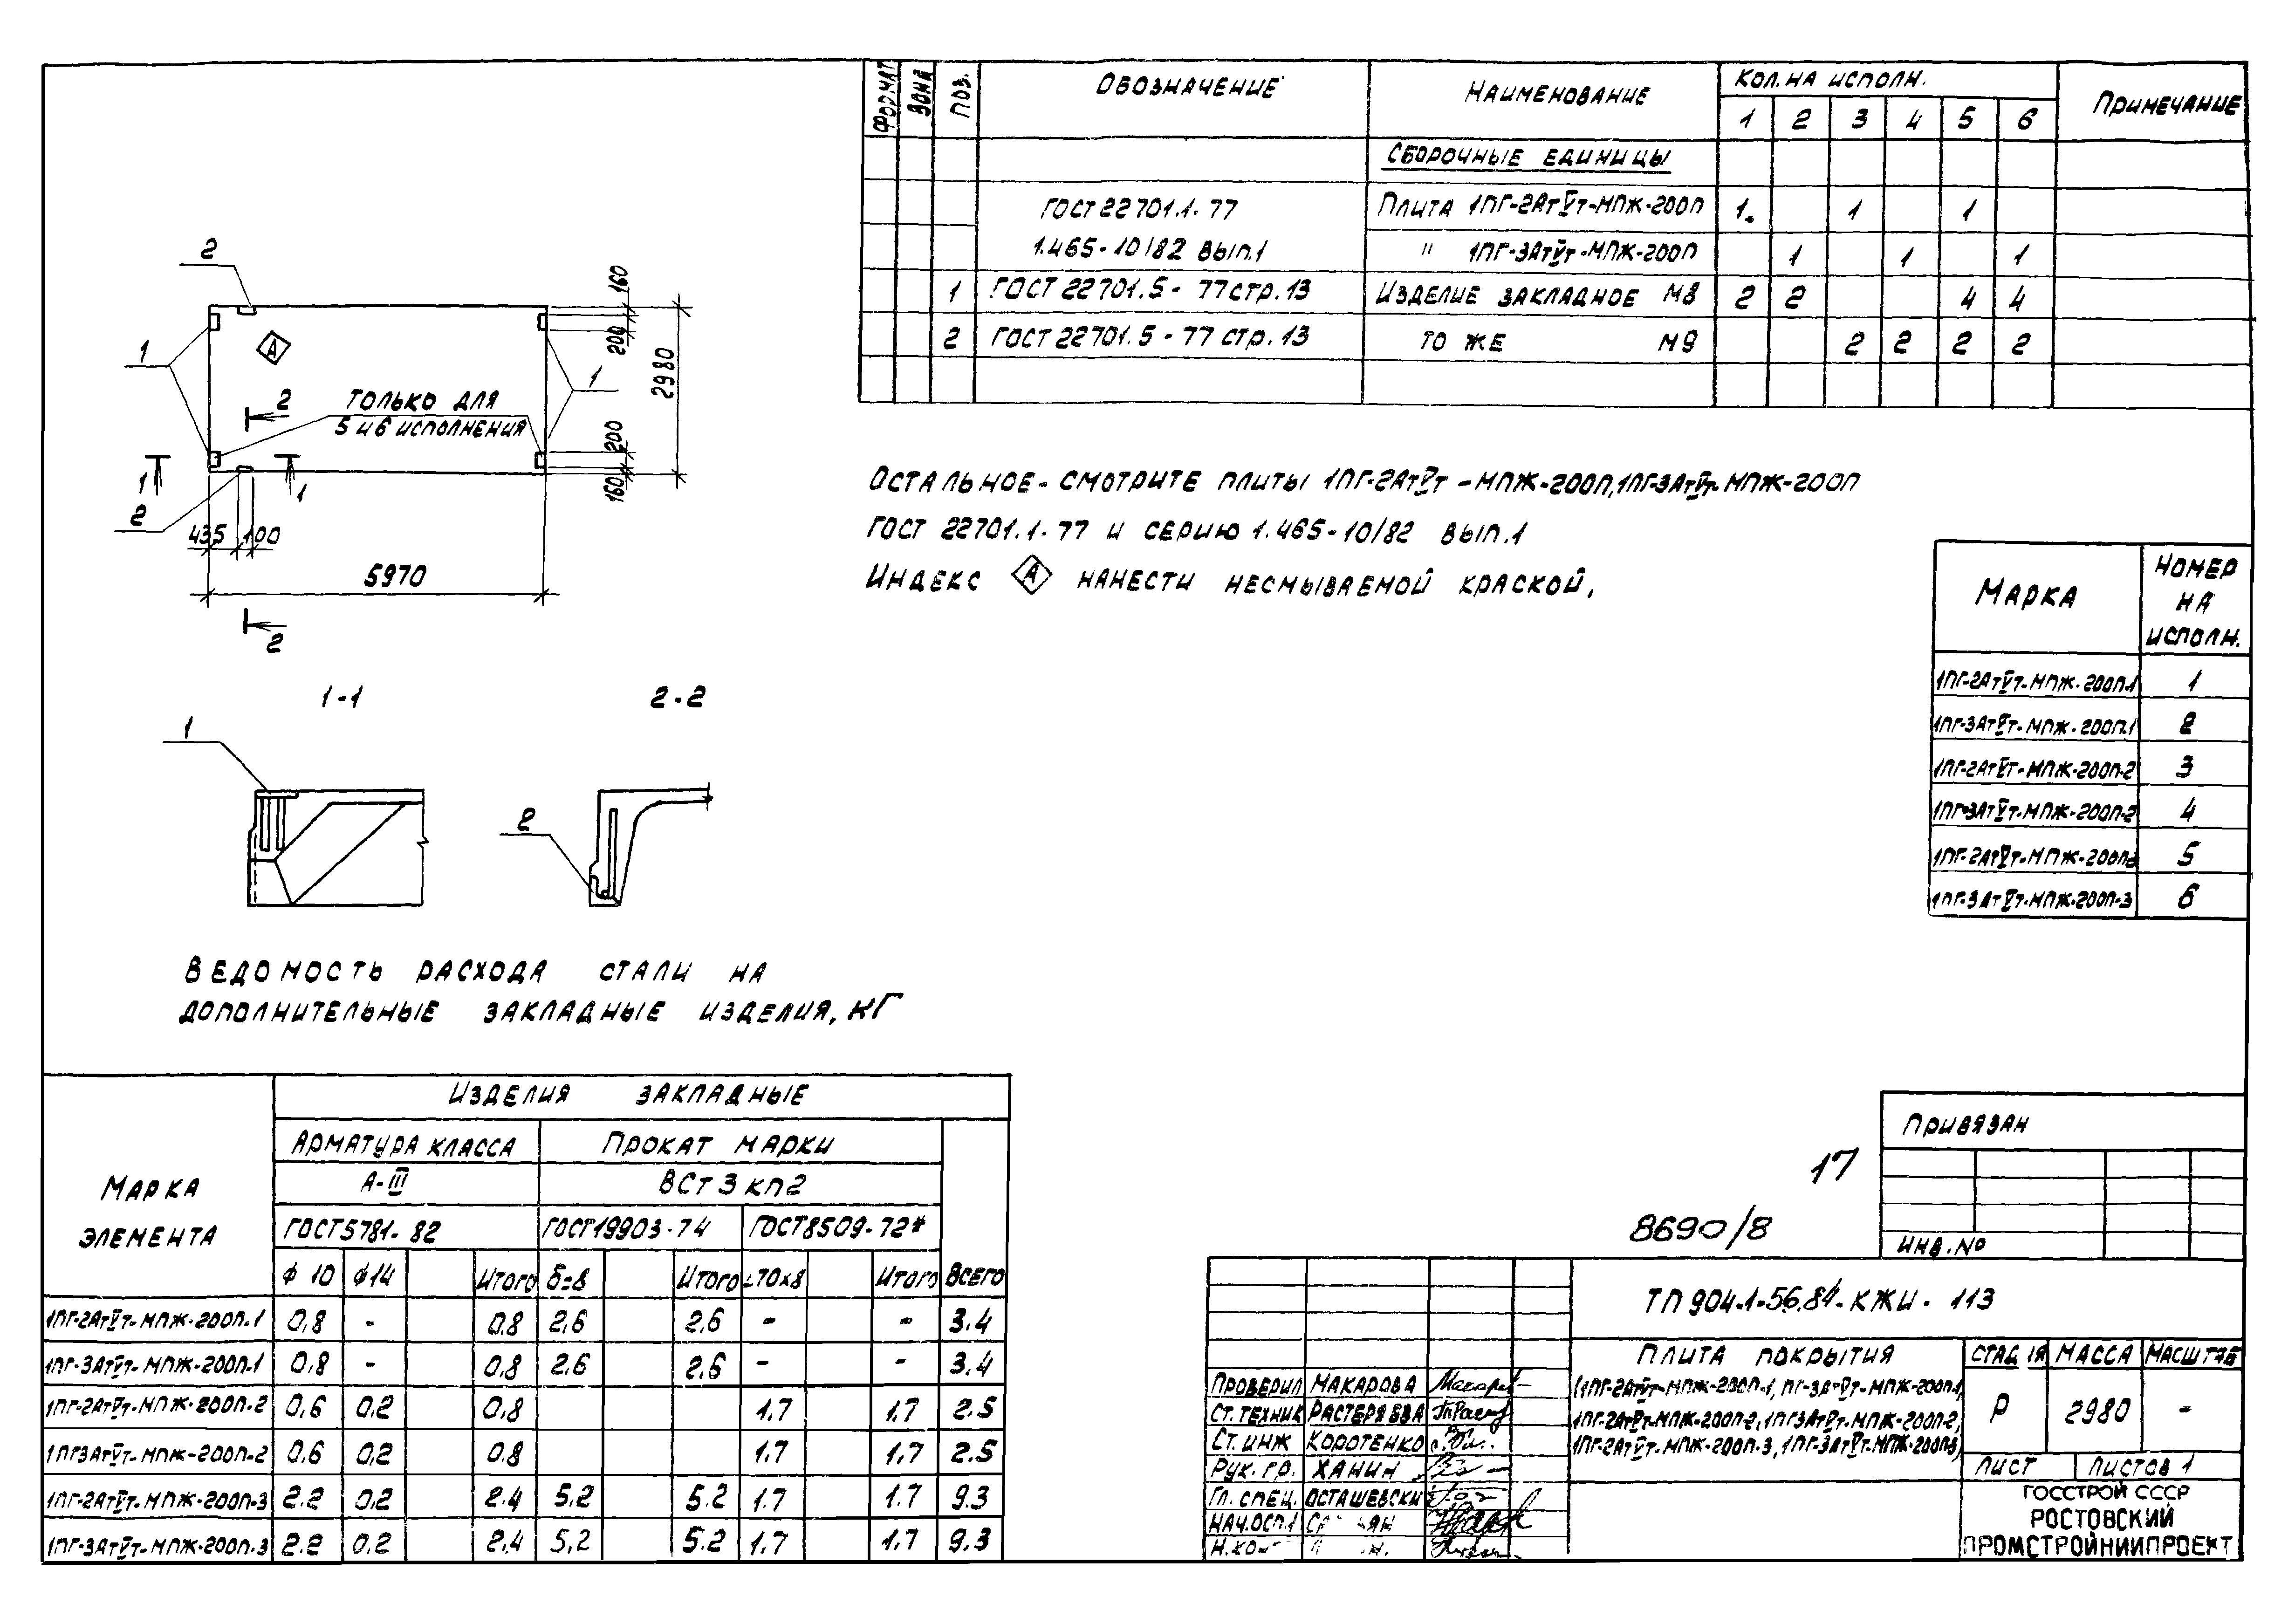 ФОРМАТ ЗОНА ПОЗ. ОБОЗНАЧЕНИЕ НАИМЕНОВАНИЕ КОЛ. НА ИСПОЛН. ПРИМЕЧАНИЕ
1 2 3 4 5 6
СБОРОЧНЫЕ ЕДИНИЦЫ
ГОСТ 22701.1-77 ПЛИТА 1ПГ-2АтVт-МПЖ-200П 1 1 1
1.465-10/82 ВЫП.1 " 1ПГ-3АтVт-МПЖ-200П 1 1 1
1 ГОСТ 22701.5-77 СТР.13 ИЗДЕЛИЕ ЗАКЛАДНОЕ М8 2 2 4 4
2 ГОСТ 22701.5-77 СТР.13 ТО ЖЕ М9 2 2 2 2
2
160
200
2980
А
1
1
2
ТОЛЬКО ДЛЯ
5 И 6 ИСПОЛНЕНИЯ
200
160
1
1
2
435 100
5970
2
ОСТАЛЬНОЕ - СМОТРИТЕ ПЛИТЫ 1ПГ-2АтVт-МПЖ-200П, 1ПГ-3АтVт-МПЖ-200П
ГОСТ 22701.1-77 И СЕРИЮ 1.465-10/82 ВЫП.1
ИНДЕКС А НАНЕСТИ НЕСМЫВАЕМОЙ КРАСКОЙ.
МАРКА НОМЕР НА ИСПОЛН.
1ПГ-2АтVт-МПЖ-200П-1 1
1ПГ-3АтVт-МПЖ-200П-1 2
1ПГ-2АтVт-МПЖ-200П-2 3
1ПГ-3АтVт-МПЖ-200П-2 4
1ПГ-2АтVт-МПЖ-200П-3 5
1ПГ-3АтVт-МПЖ-200П-3 6
1-1 2-2
1
2
ВЕДОМОСТЬ РАСХОДА СТАЛИ НА
ДОПОЛНИТЕЛЬНЫЕ ЗАКЛАДНЫЕ ИЗДЕЛИЯ, КГ
МАРКА ЭЛЕМЕНТА
ИЗДЕЛИЯ ЗАКЛАДНЫЕ
АРМАТУРА КЛАССА ПРОКАТ МАРКИ
А-III ВСт3кп2
ГОСТ 5781-82 ГОСТ 19903-74 ГОСТ 8509-72*
ф 10 ф14 ИТОГО δ=8 ИТОГО ∟70х8 ИТОГО ВСЕГО
1ПГ-2АтVт-МПЖ-200П-1 0,8 - 0,8 2,6 2,6 - - 3.4
1ПГ-3АтVт-МПЖ-200П-1 0,8 - 0,8 2,6 2,6 - - 3.4
1ПГ-2АтVт-МПЖ-200П-2 0,6 0,2 0,8 1.7 1.7 2.5
1ПГ3АтVт-МПЖ-200П-2 0,6 0,2 0,8 1.7 1,7 2.5
1ПГ-2АтVт-МПЖ-200П-3 2.2 0,2 2.4 5,2 5.2 1.7 1.7 9.3
1ПГ-3АтVт-МПЖ-200П-3 2.2 0,2 2,4 5,2 5.2 1.7 1.7 9.3
ПРИВЯЗАН
ИНВ. №
17
8690/8
ТП 904-1-56.84-КЖИ-113
ПЛИТА ПОКРЫТИЯ
(1ПГ-2АтVт-МПЖ-200П-1, ПГ-3АтVт-МПЖ-200П-1,
1ПГ-2АтVт-МПЖ-200П-2, 1ПГ3АтVт-МПЖ-200П-2,
1ПГ-2АтVт-МПЖ-200П-3, 1ПГ-3АтVт-МПЖ-200П-3)
СТАДИЯ МАССА МАСШТАБ
Р 2980 -
ЛИСТ ЛИСТОВ 1
ГОССТРОЙ СССР
РОСТОВСКИЙ
ПРОМСТРОЙНИИПРОЕКТ
ПРОВЕРИЛ МАКАРОВА
СТ. ТЕХНИК РАСТЕРЯЕВА
СТ. ИНЖ КОРОТЕНКО
РУК. ГР. ХАНИН
ГЛ. СПЕЦ. ОСТАШЕВСКИ
НАЧ.ОСП.1